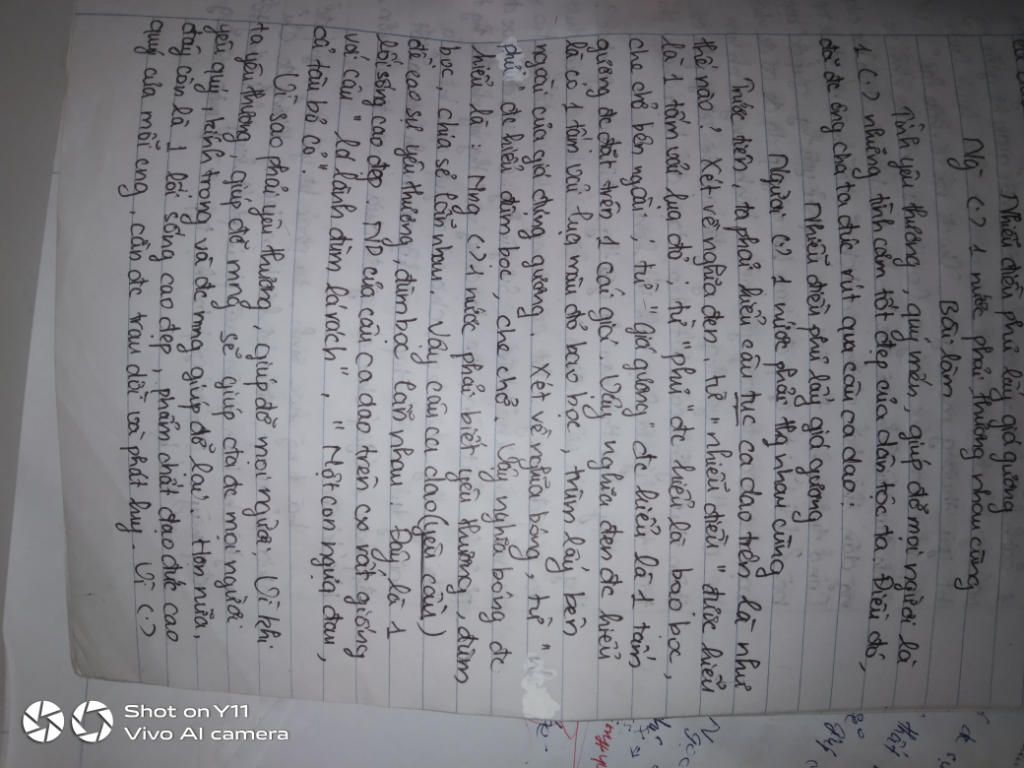 Nhiễu điều phủ lấy giá gương
Ng` (.) 1 nước phải thương nhau cùng
Bài làm
Tình yêu thương, quý mến, giúp đỡ mọi người là
1 (.) những tình cảm tốt đẹp của dân tộc ta. Điều đó,
đã đc ông cha ta đúc rút qua câu ca dao:
Nhiễu điều phủ lấy giá gương
Người (.) 1 nước phải thg nhau cùng
Trước tiên, ta phải hiểu câu tục ca dao trên là như
thế nào? Xét về nghĩa đen, từ "nhiễu điều" được hiểu
là 1 tấm vải lụa đỏ, từ "phủ" đc hiểu là bao bọc,
che chở bên ngoài, từ "giá gương" đc hiểu là 1 tấm
gương đc đặt trên 1 cái giá. Vậy nghĩa đen đc hiểu
là có 1 tấm vải lụa màu đỏ bao bọc, trùm lấy bên
ngoài của giá đựng gương. Xét về nghĩa bóng, từ "
phủ" đc hiểu đùm bọc, che chở. Vậy nghĩa bóng đc
hiểu là: Nhg (.) 1 nước phải biết yêu thương, đùm
bọc, chia sẻ lẫn nhau. Vậy câu ca dao (yêu cầu)
đề cao sự yêu thương, đùm bọc lẫn nhau. Đây là 1
lối sống cao đẹp. ND của câu ca dao trên có rất giống
với câu "lá lành đùm lá rách", "Một con ngựa đau,
cả tàu bỏ cỏ".
Vì sao phải yêu thương, giúp đỡ mọi người? Vì khi
ta yêu thương, giúp đỡ mng sẽ giúp ta đc mọi người
yêu quý, kính trọng và đc mng giúp đỡ lại. Hơn nữa,
đây còn là 1 lối sống cao đẹp, phẩm chất đạo đức cao
quý của mỗi cng, cần đc trau dồi và phát huy. Vì (.)
Shot on Y11
Vivo AI camera